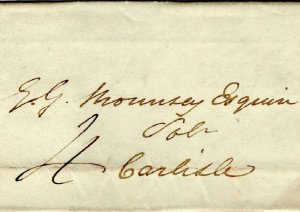 G. G. Mounsey Esquire
Solr
Carlisle